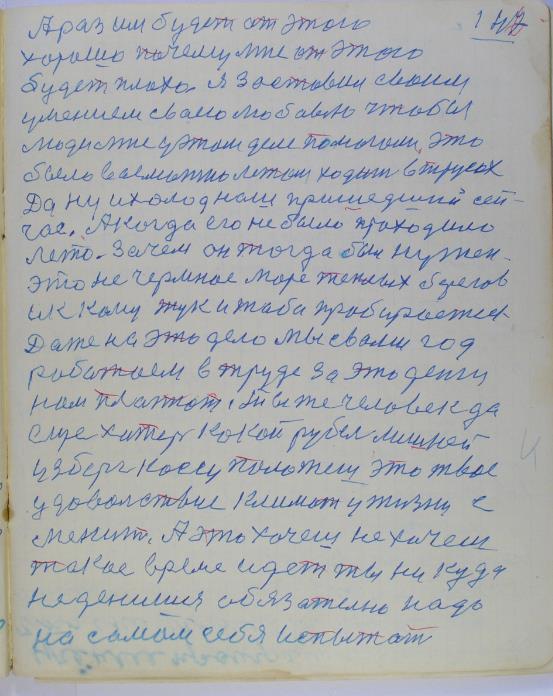 147
А раз им будет от этого
хорошо почему мне от этого
будет плохо. Я заставил своим
умением свано мобавю чтобы
люди мне у этом деле помогали, это
было ваемотно летом ходит в трусах
Да ну и холод нам пришедший сей-
час. А когда его не было проходило
лето. Зачем он тогда был нужен.
это не чермное море теплых берегов
и к кому тук и таба пробирается
Даже на это дело мы свами год
работаем в труде за это денги
нам платют. Ты же человек да
еще хитер кокой рубел лишней
узберг кассу положеш это твое
удоволствие климат у жизни с
менит. А это хочеш не хочеш
такое време идет ты ни куда
неденишся обязателно надо
на самом себя испытат